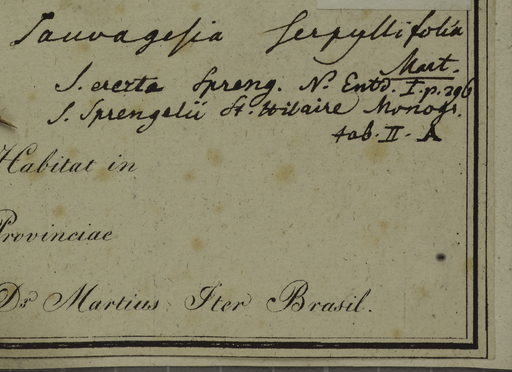 Sauvagesia serpyllifolia
Mart.
S. erecta Spreng. N. Entd. I. p. 296
S. Sprengelii St. Hilaire Monogr.
tab. II. A
Habitat in
Provinciae
Dr Martius Iter Brasil.